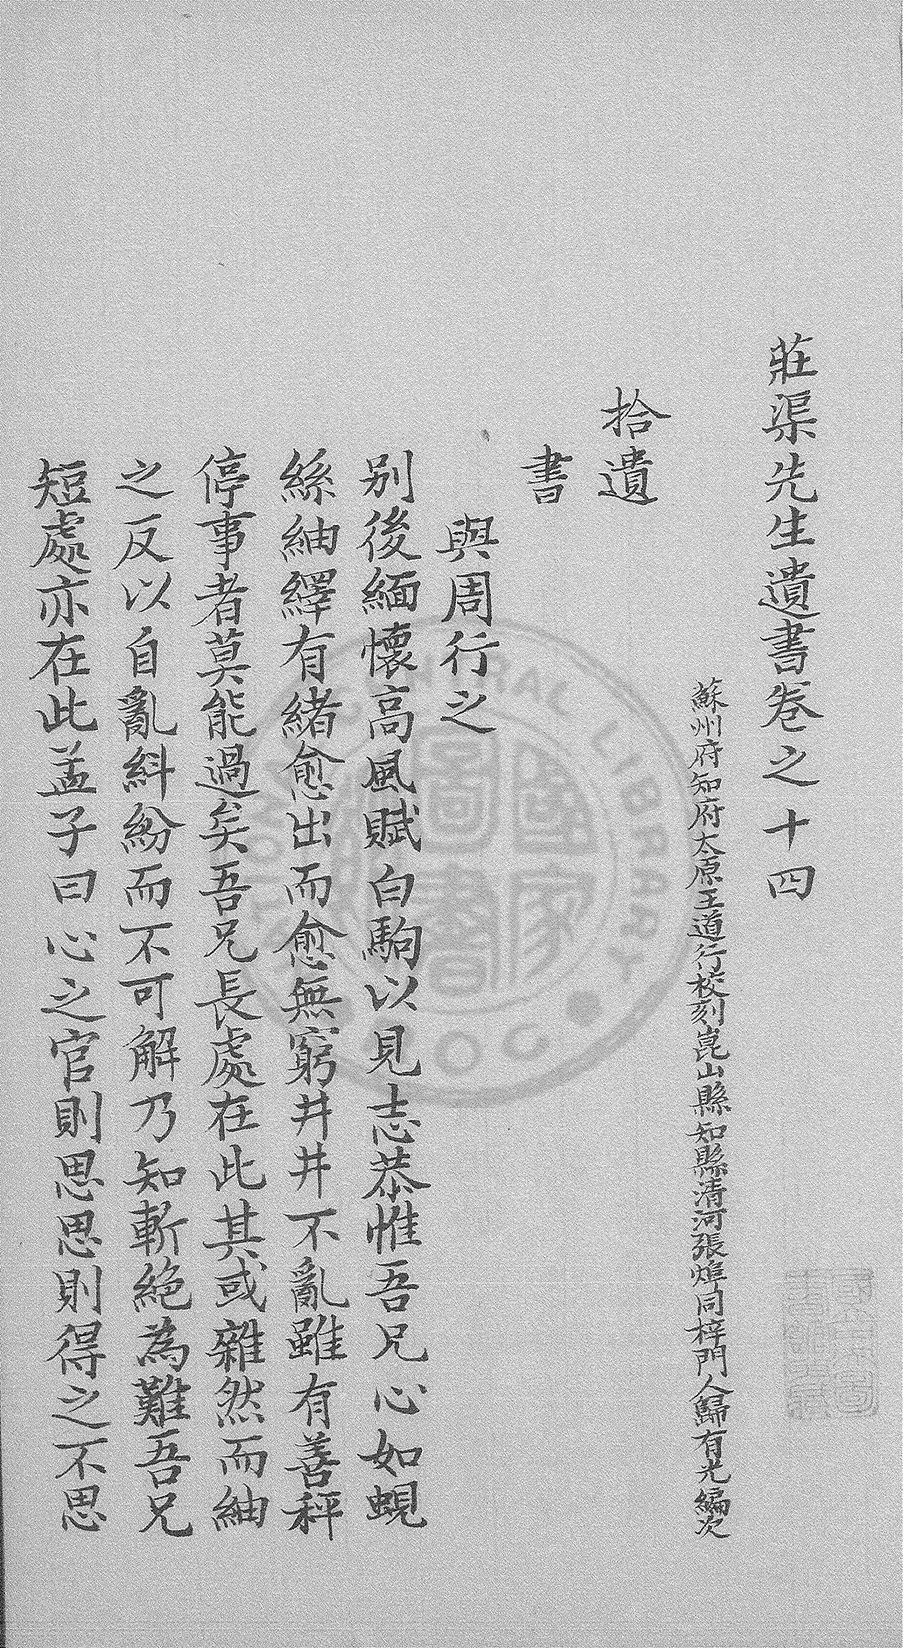 莊渠先生遺書卷之十四
蘇州府知府太原王道行校刻崑山縣知縣清河張焲同梓門人歸有光編次
拾遺
書
與周行之
别後緬懷高風賦白駒以見志恭惟吾兄心如蜆
絲紬繹有緒愈出而愈無窮井井不亂雖有善秤
停事者莫能過矣吾兄長處在此其或雜然而紬
之反以自亂糾紛而不可解乃知斬絕為難吾兄
短處亦在此孟子曰心之官則思思則得之不思
國家圖書
CENTRAL LIBRARY